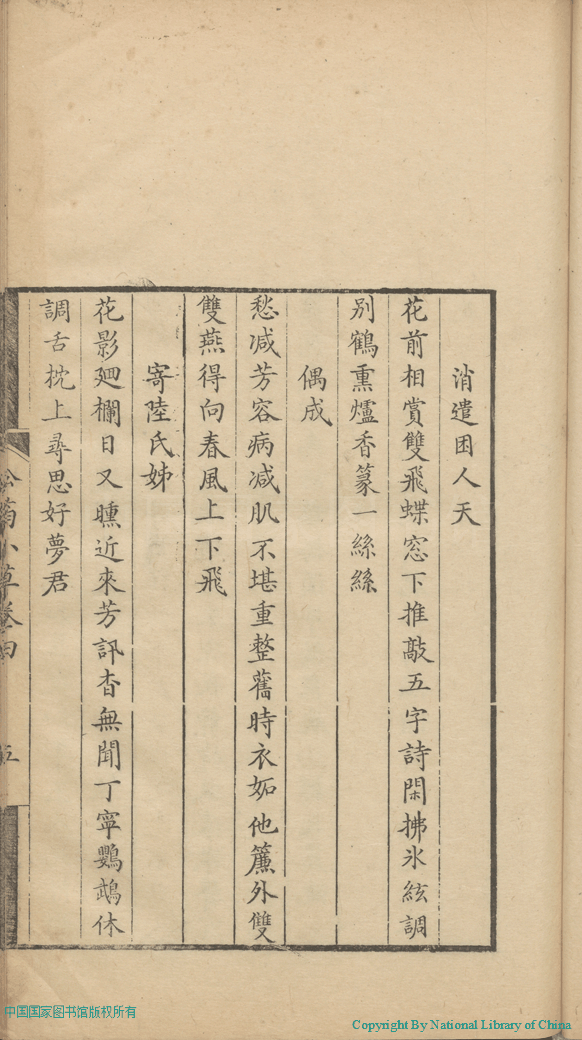 消遣困人天
花前相賞雙飛蝶窓下推敲五字詩閑拂氷絃調
別鶴熏爐香篆一絲絲
偶成
愁减芳容病减肌不堪重整舊時衣妬他簾外雙
雙燕得向春風上下飛
寄陸氏姊
花影廻欄日又曛近來芳訊杳無聞丁寧鸚鵡休
調舌枕上尋思好夢君
菊小草卷四
五
中国国家图书馆版权所有
Copyright By National Library of China